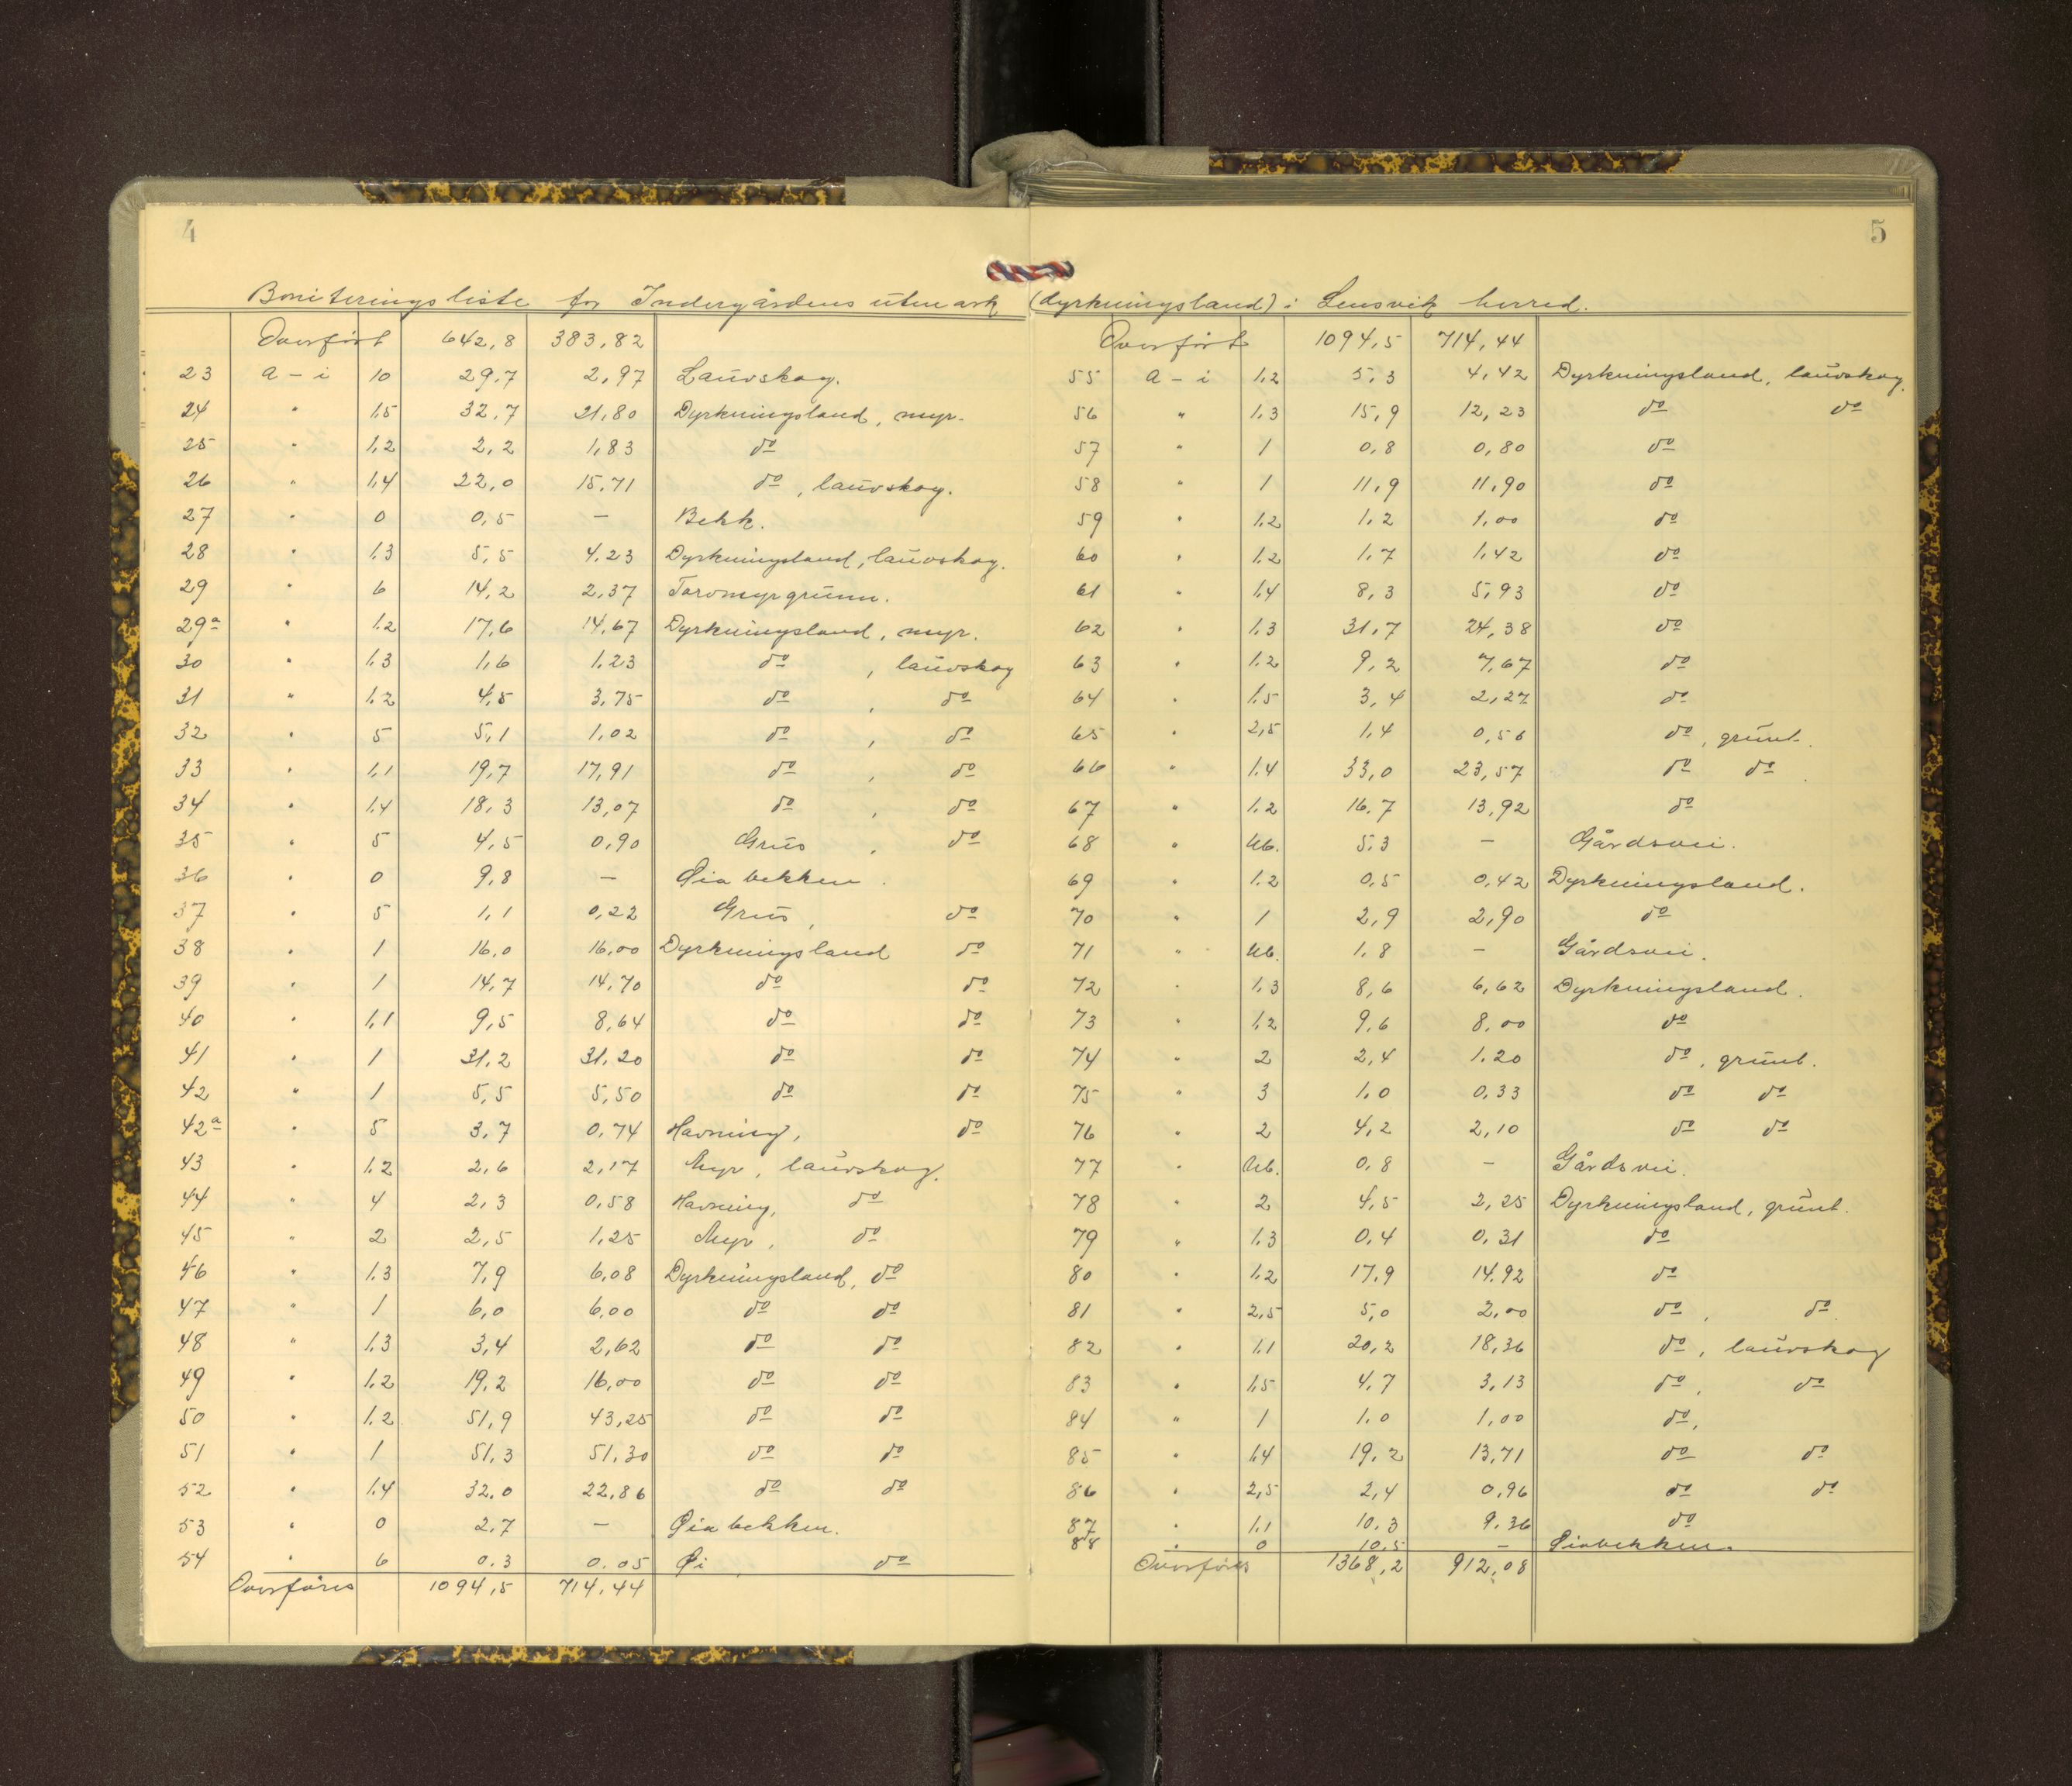 4
Boniteringsliste for Indergårdens utmark
Overført 642,8 383,82
23 a - i 10 29,7 2,97 Lauvskog.
24 " 1,5 32,7 21,80 Dyrkningsland, myr.
25 " 1,2 2,2 1,83 do
26 " 1,4 22,0 15,71 do, lauvskog.
27 " 0 0,5 — Bekk.
28 " 1,3 5,5 4,23 Dyrkningsland, lauvskog.
29 " 6 14,2 2,37 Torvmyrgrunn.
29a " 1,2 17,6 14,67 Dyrkningsland, myr.
30 " 1,3 1,6 1,23 do, lauvskog
31 " 1,2 4,5 3,75 do, do
32 " 5 5,1 1,02 do, do
33 " 1,1 19,7 17,91 do, do
34 " 1,4 18,3 13,07 do, do
35 " 5 4,5 0,90 Grus, do
36 " 0 9,8 — Øiabekken.
37 " 5 1,1 0,22 Grus, do
38 " 1 16,0 16,00 Dyrkningsland do
39 " 1 14,7 14,70 do do
40 " 1,1 9,5 8,64 do do
41 " 1 31,2 31,20 do do
42 " 1 5,5 5,50 do do
42a " 5 3,7 0,74 Havning, do
43 " 1,2 2,6 2,17 Myr, lauvskog.
44 " 4 2,3 0,58 Havning, do
45 " 2 2,5 1,25 Myr, do
46 " 1,3 7,9 6,08 Dyrkningsland, do
47 " 1 6,0 6,00 do do
48 " 1,3 3,4 2,62 do do
49 " 1,2 19,2 16,00 do do
50 " 1,2 51,9 43,25 do do
51 " 1 51,3 51,30 do do
52 " 1,4 32,0 22,86 do do
53 " 0 2,7 — Øiabekken.
54 " 6 0,3 0,05 Øi do
Overføres 1094,5 714,44
5
(dyrkningsland) i Lensvik herred.
Overført 1094,5 714,44
55 a - i 1,2 5,3 4,42 Dyrkningsland, lauvskog.
56 " 1,3 15,9 12,23 do do
57 " 1 0,8 0,80 do
58 " 1 11,9 11,90 do
59 " 1,2 1,2 1,00 do
60 " 1,2 1,7 1,42 do
61 " 1,4 8,3 5,93 do
62 " 1,3 31,7 24,38 do
63 " 1,2 9,2 7,67 do
64 " 1,5 3,4 2,27 do
65 " 2,5 1,4 0,56 do, grunt.
66 " 1,4 33,0 23,57 do do
67 " 1,2 16,7 13,92 do
68 " Ub. 5,3 — Gårdsvei.
69 " 1,2 0,5 0,42 Dyrkningsland.
70 " 1 2,9 2,90 do
71 " Ub. 1,8 — Gårdsvei.
72 " 1,3 8,6 6,62 Dyrkningsland.
73 " 1,2 9,6 8,00 do
74 " 2 2,4 1,20 do, grunt.
75 " 3 1,0 0,33 do do
76 " 2 4,2 2,10 do do
77 " Ub. 0,8 — Gårdsvei.
78 " 2 4,5 2,25 Dyrkningsland, grunt.
79 " 1,3 0,4 0,31 do
80 " 1,2 17,9 14,92 do
81 " 2,5 5,0 2,00 do, do.
82 " 1,1 20,2 18,36 do, lauvskog
83 " 1,5 4,7 3,13 do, do
84 " 1 1,0 1,00 do,
85 " 1,4 19,2 13,71 do do
86 " 2,5 2,4 0,96 do do
87 " 1,1 10,3 9,36 do
88 " 0 10,5 — Øiabekken
Overføres 1368,2 912,08